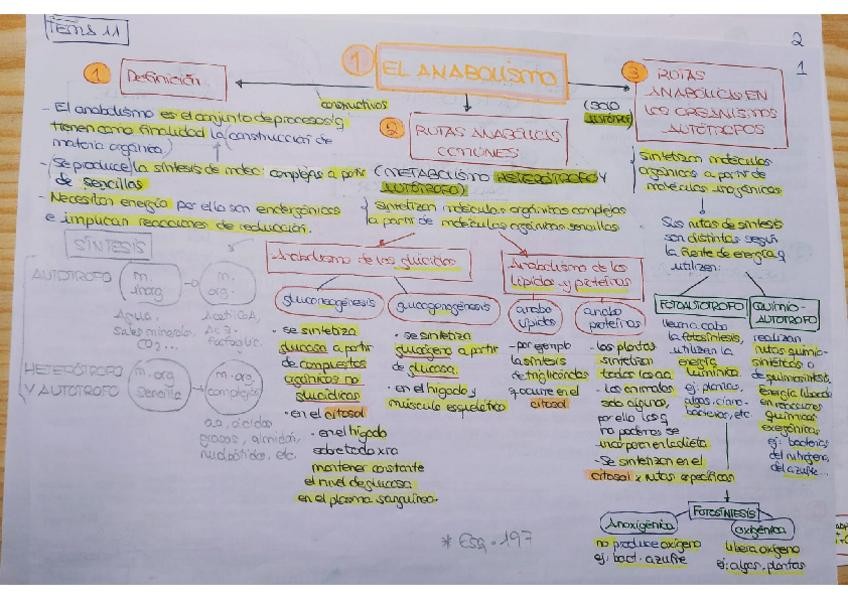 TEMA 11
2
1
1 EL ANABOLISMO
1 Definición
- El anabolismo es el conjunto de procesos q
constructivos
tienen como finalidad la (construcción de
materia orgánica.)
- Se produce la síntesis de molec. complejas a partir
de sencillas
- Necesitan energía por ello son endergónicas
e implican reacciones de reducción.
2 RUTAS ANABÓLICAS
COMUNES
(METABOLISMO HETERÓTROFO Y
AUTÓTROFO)
sintetizan moléculas orgánicas complejas
a partir de moléculas orgánicas sencillas
3 RUTAS
ANABÓLICAS EN
LOS ORGANISMOS
AUTÓTROFOS
(SOLO
sintetizan moléculas
orgánicas a partir de
moléculas inorgánicas
Sus rutas de síntesis
son distintas según
la fuente de energía q
utilizen:
SÍNTESIS
AUTÓTROFO
m.
inorg
m.
org.
Agua,
sales minerales,
CO2...
Acetil CoA,
HETERÓTROFO
Y AUTÓTROFO
m. org
sencilla
m. org
complejas
aa, ácidos
grasos, almidón,
nucleótidos, etc.
Anabolismo de los glúcidos
gluconeogénesis
- se sintetiza
glucosa a partir
de compuestos
orgánicos no
glucídicos
- en el citosol
- en el hígado
sobretodo xra
mantener constante
el nivel de glucosa
en el plasma sanguíneo.
glucogenogénesis
- se sintetiza
glucógeno a partir
de glucosa.
- en el hígado y
músculo esquelético
Anabolismo de los
lípidos y proteínas
anabo
lípidos
- por ejemplo
la síntesis
de triglicéridos
q ocurre en el
citosol
anabo
proteínas
- las plantas
sintetizan
todos los aa.
- los animales
solo algunos,
por ello los q
no podemos se
incorporan en la dieta
- Se sintetizan en el
citosol x rutas específicas
FOTOAUTÓTROFO
lleva a cabo
la fotosíntesis,
utilizan la
energía
lumínica
ej: plantas,
algas, ciano-
bacterias, etc.
QUIMIO-
AUTÓTROFO
realizan
rutas quimio-
sintéticas o
de quimiosíntesis.
Energía liberada
en reacciones
químicas
exergónicas
ej: bacterias
del nitrógeno,
del azufre...
FOTOSÍNTESIS
Anoxigénica
no produce oxígeno
ej: bact. azufre
oxigénica
libera oxígeno
ej: algas, plantas
* ESQ. 197